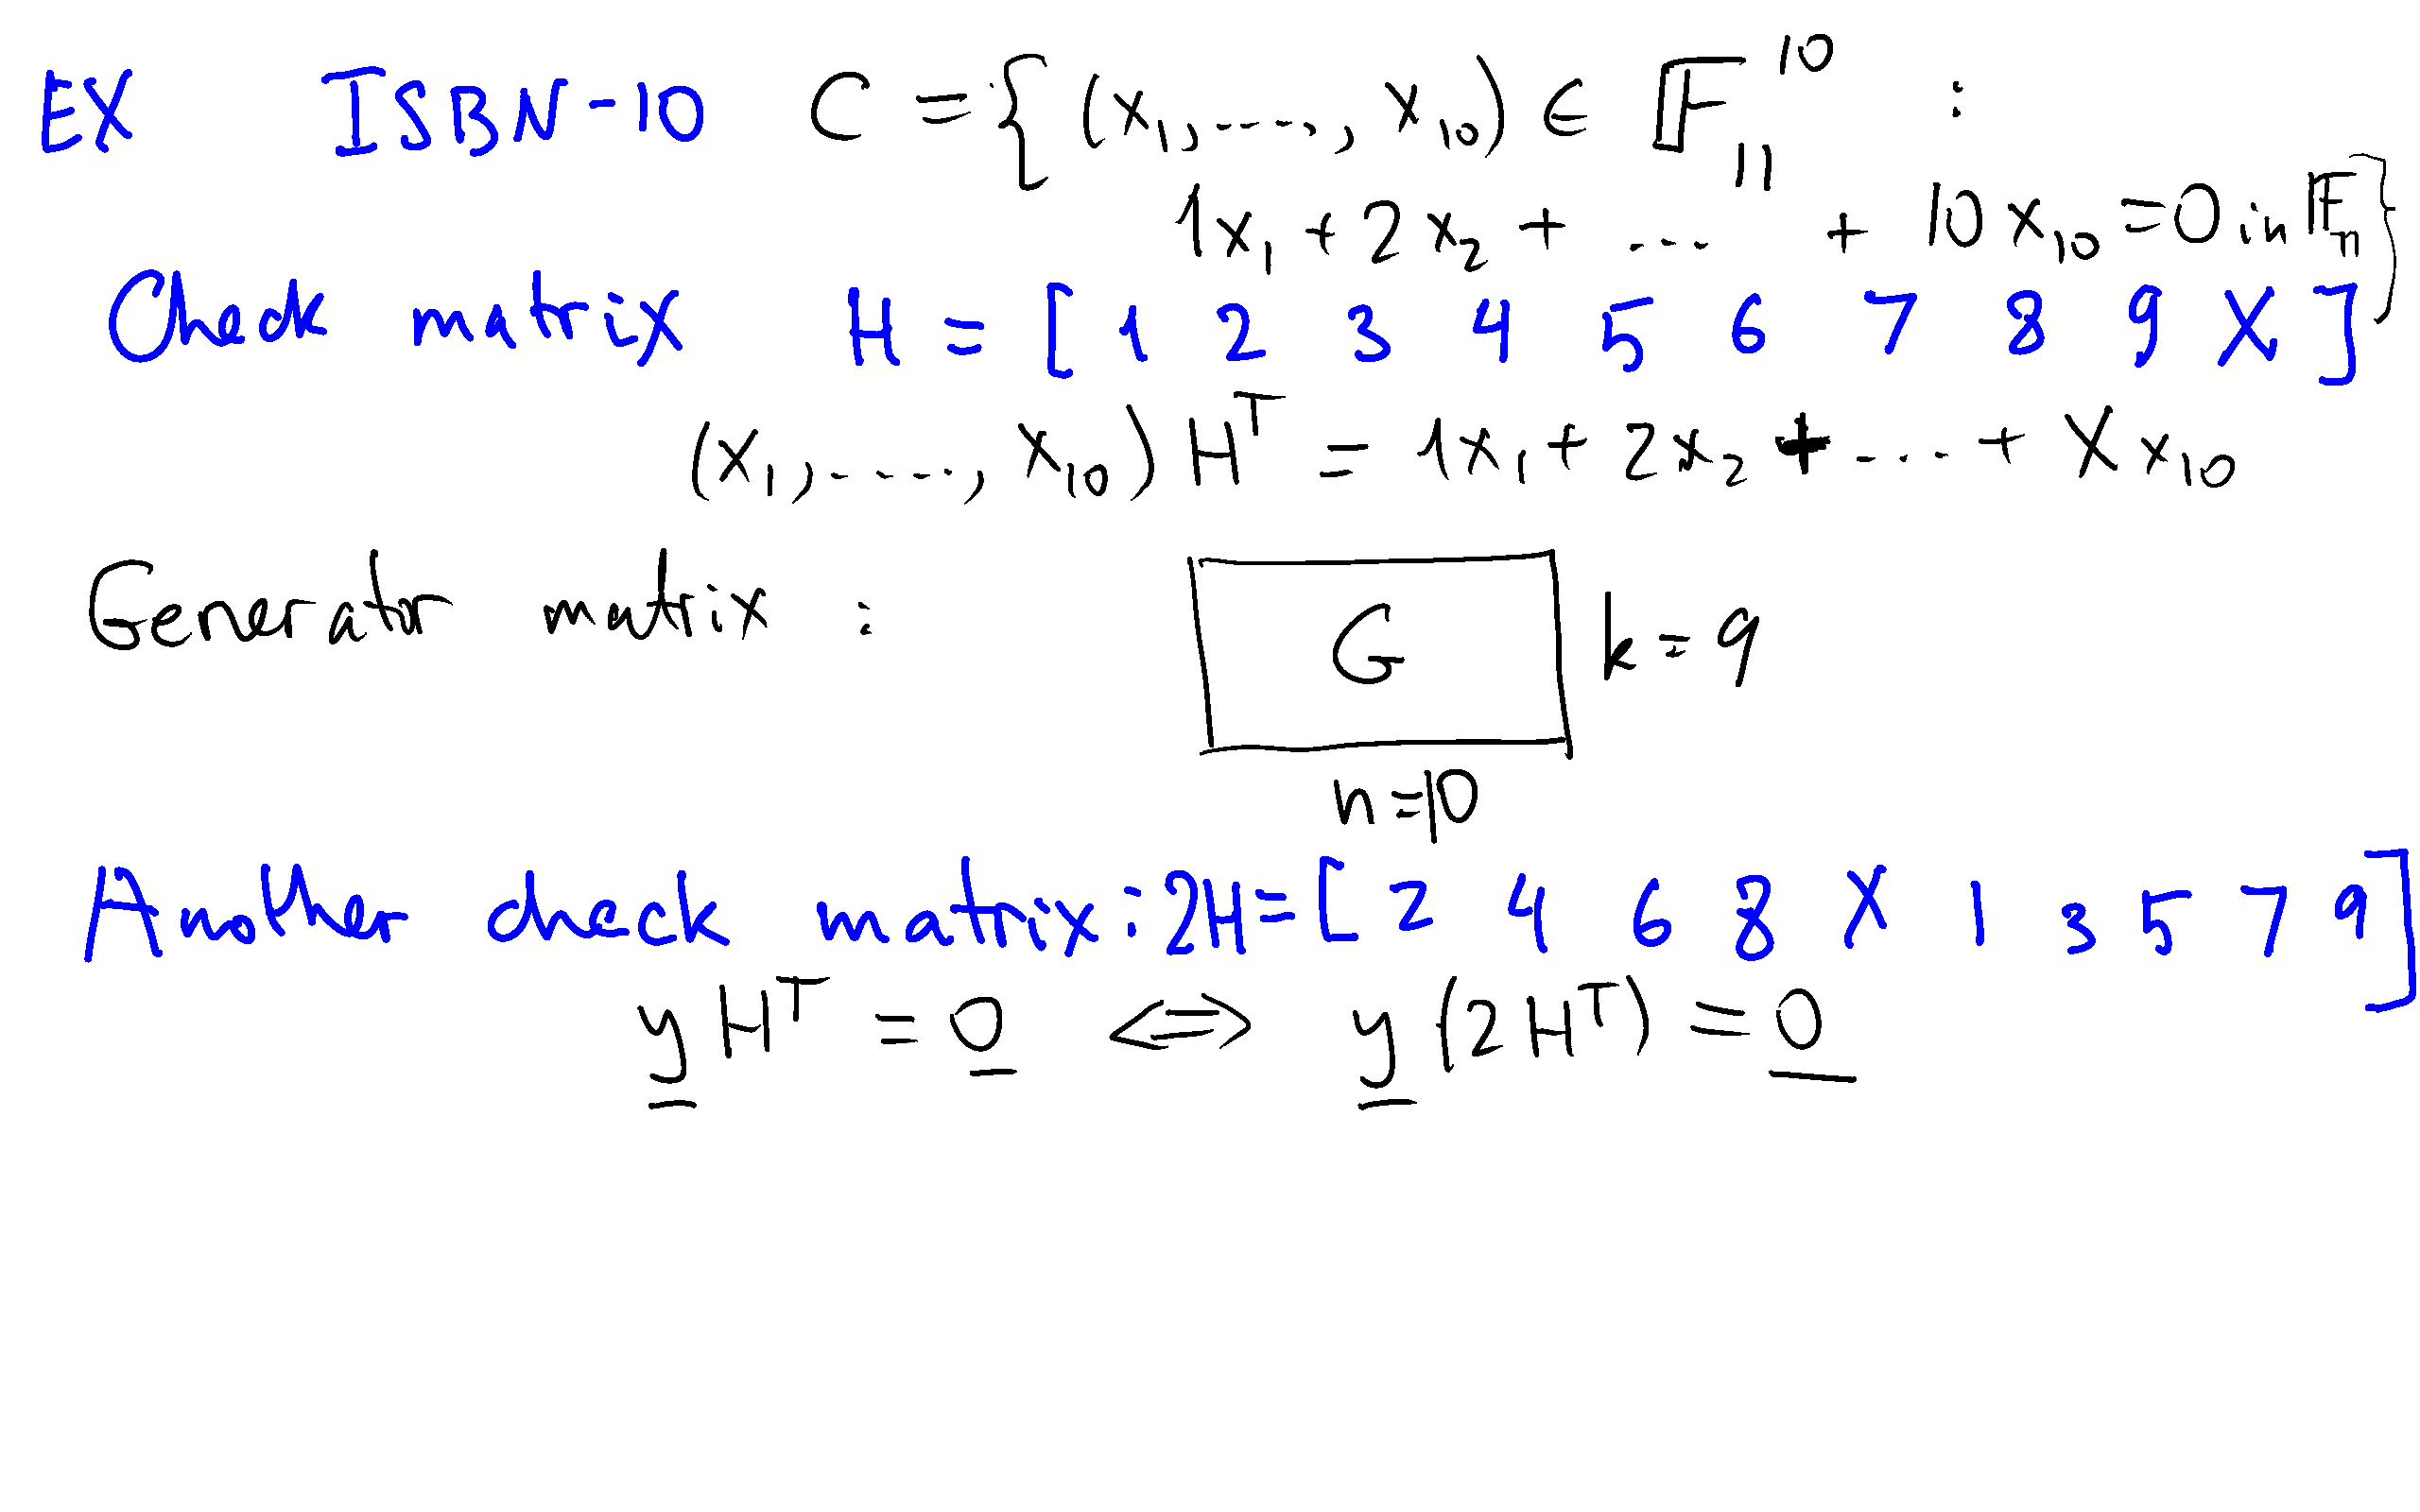 EX ISBN-10 C = { (x₁, ...., x₁₀) ∈ 𝔽₁₁¹⁰ :
1x₁ + 2x₂ + ... + 10x₁₀ = 0 in 𝔽₁₁ }
Check matrix H = [ 1 2 3 4 5 6 7 8 9 X ]
(x₁, ...., x₁₀) Hᵀ = 1x₁ + 2x₂ + ... + X x₁₀
Generator matrix : G k = 9
n = 10
Another check matrix : 2H = [ 2 4 6 8 X 1 3 5 7 9 ]
y Hᵀ = 0 ⇔ y (2Hᵀ) = 0